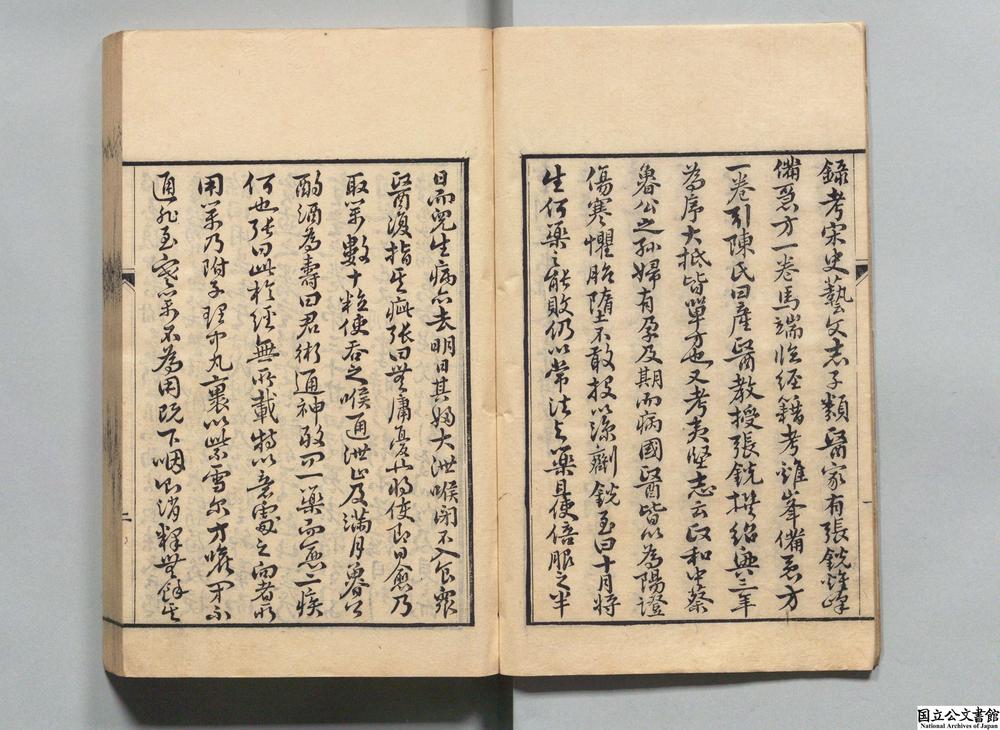 錄考宋史藝文志子類醫家有張銳雞峰
備急方一卷馬端臨經籍考雞峯備急方
一卷引陳氏曰產醫教授張銳撰紹興三年
為序大抵皆單方也又考夷堅志云政和中蔡
魯公之孫婦有孕及期而病國醫皆以為陽證
傷寒懼胎墮不敢投以涼劑銳至曰十月將
生何藥之能敗仍以常法与藥且使倍服之半
日而兒生病亦去明日其婦大泄喉閉不入食眾
醫復指其疵張曰無庸憂也將使即日愈乃
取藥數十粒使吞之喉通泄止及滿月魯公
酌酒為壽曰君術通神敢問一藥而愈二疾
何也張曰此於經無所載特以意處之向者所
用藥乃附子理中丸裹以紫雪尔方喉閉不
通非至寒藥不為用既下咽則消釋無餘其
二
国立公文書館
National Archives of Japan